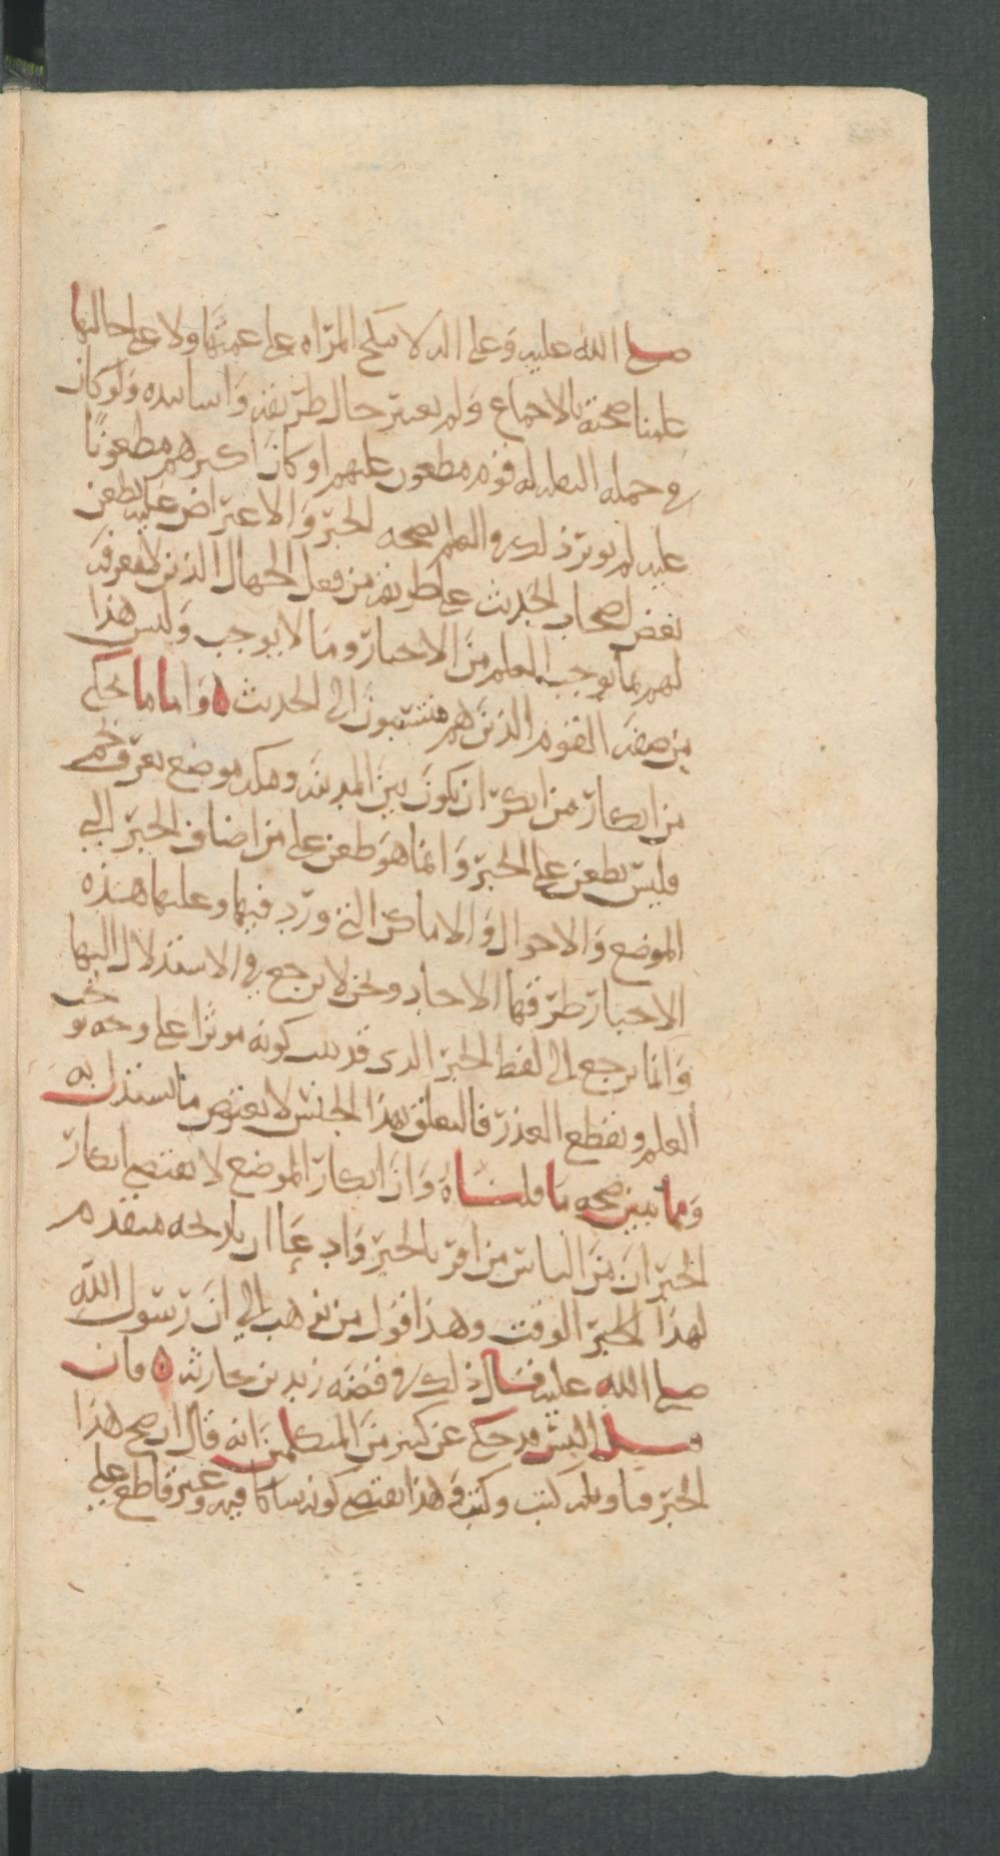 صلى الله عليه وعلى اله لا تنكح المراه على عمتها ولا على خالتها
علمنا صحته بالاجماع ولم نعتبر حال طريقه واسانيده ولو كان
في حمله النقله له قوم مطعون عليهم او كان اكثرهم مطعونا
عليه لم يوثر ذلك في والعلم بصحه الخبر والاعتراض عليه بطعن
بعض اصحاب الحديث على طريقه من فعل الجهال الذين لا معرفه
لهم بما يوجب العلم من الاخبار وما لا يوجب وليس هذا
من صفه القوم الذين هم منتسبون الى الحديث ه واما ما حكي
من انكار من انكر ان يكون بين المدينه ومكه موضع يعرف بخم
فليس بطعن على الخبر وانما هو طعن على من اضاف الخبر الى
الموضع والاحوال والاماكن التي ورد فيها وعليها هذه
الاخبار طرقها الاحاد ونحن لا نرجع في الاستدلال اليها
وانما نرجع الى لفظ الخبر الذي قد ثبت كونه موثرا على وجه يوجب
العلم ويقطع العذر فالتعلق بهذا الجنس لا يعترض ما نستدل به
ومما يبين صحه ما قلناه وان انكار الموضع لا يقتضي انكار
الخبر ان من الناس من اقر بالخبر وادعا ان تاريخه متقدم
لهذا الوقت وهذا قول من يذهب الى ان رسول الله
صلى الله عليه قال ذلك في قصه زيد بن حارثه ه فان
قيل اليس قد حكي عن كثير من المتكلمين انه قال ان صح هذا
الخبر فتاويله كيت وكيت وهذا يقتضي كونه شاكا فيه وغير قاطع على